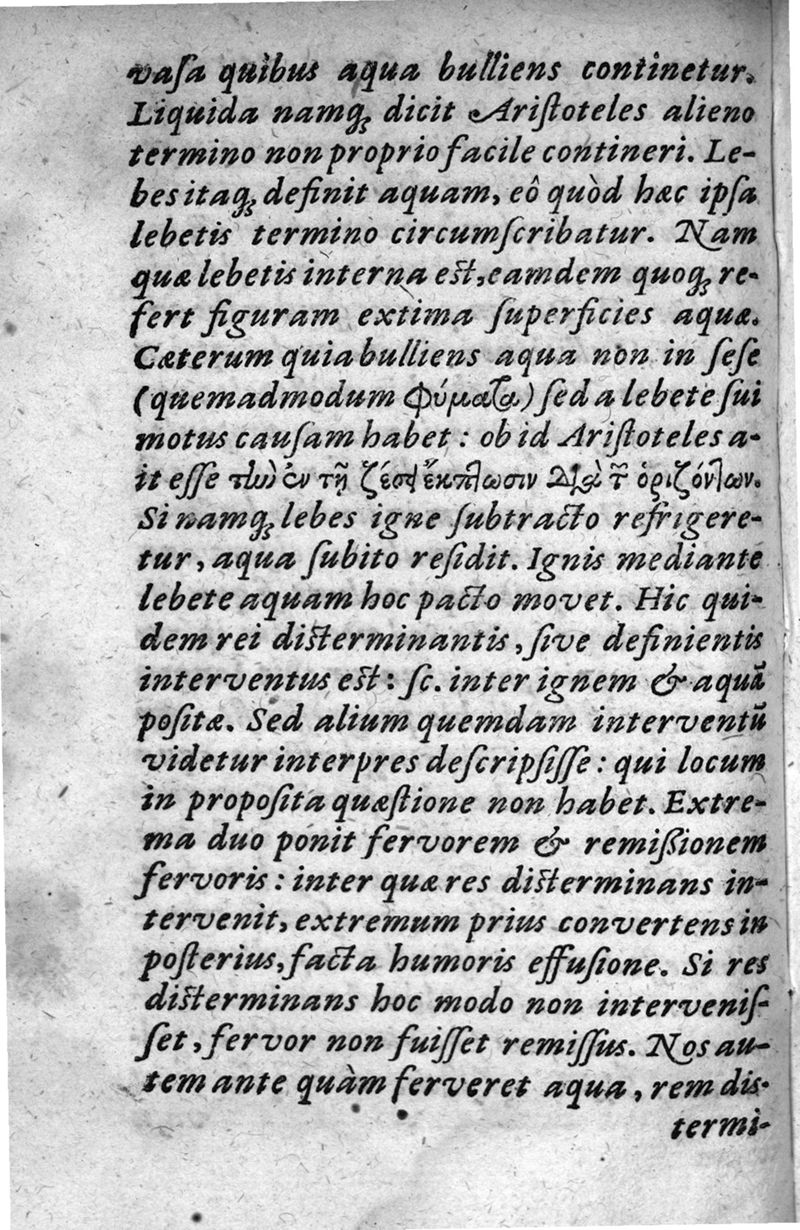 vaſa quibus aqua bulliens continetur.
Liquida namq́ꝫ dicit Ariſtoteles alieno
termino non proprio facile contineri. Le-
bes itaq́ꝫ definit aquam, eô quòd hæc ipſa
lebetis termino circumſcribatur. Nam
quæ lebetis interna eſt, eamdem quoq́ꝫ re-
fert figuram extima ſuperficies aquæ.
Cæterum quia bulliens aqua non in ſeſe
(quemadmodum φύματα) ſed a lebete ſui
motus cauſam habet : ob id Ariſtoteles a-
it eſſe τὴν ἐν τῇ ζέσει ἔκπτωσιν διὰ τ῀ ὁριζόντων.
Si namq́ꝫ lebes igne ſubtracto refrigere-
tur, aqua ſubito reſidit. Ignis mediante
lebete aquam hoc pacto movet. Hic qui-
dem rei diſterminantis, ſive definientis
interventus eſt : ſc. inter ignem & aquã
poſitæ. Sed alium quemdam interventũ
videtur interpres deſcripſiſſe : qui locum
in propoſita quæſtione non habet. Extre-
ma duo ponit fervorem & remiſſionem
fervoris : inter quæ res diſterminans in-
tervenit, extremum prius convertens in
poſterius, facta humoris effuſione. Si res
diſterminans hoc modo non interveniſ-
ſet, fervor non fuiſſet remiſſus. Nos au-
tem ante quàm ferveret aqua, rem dis-
termi-